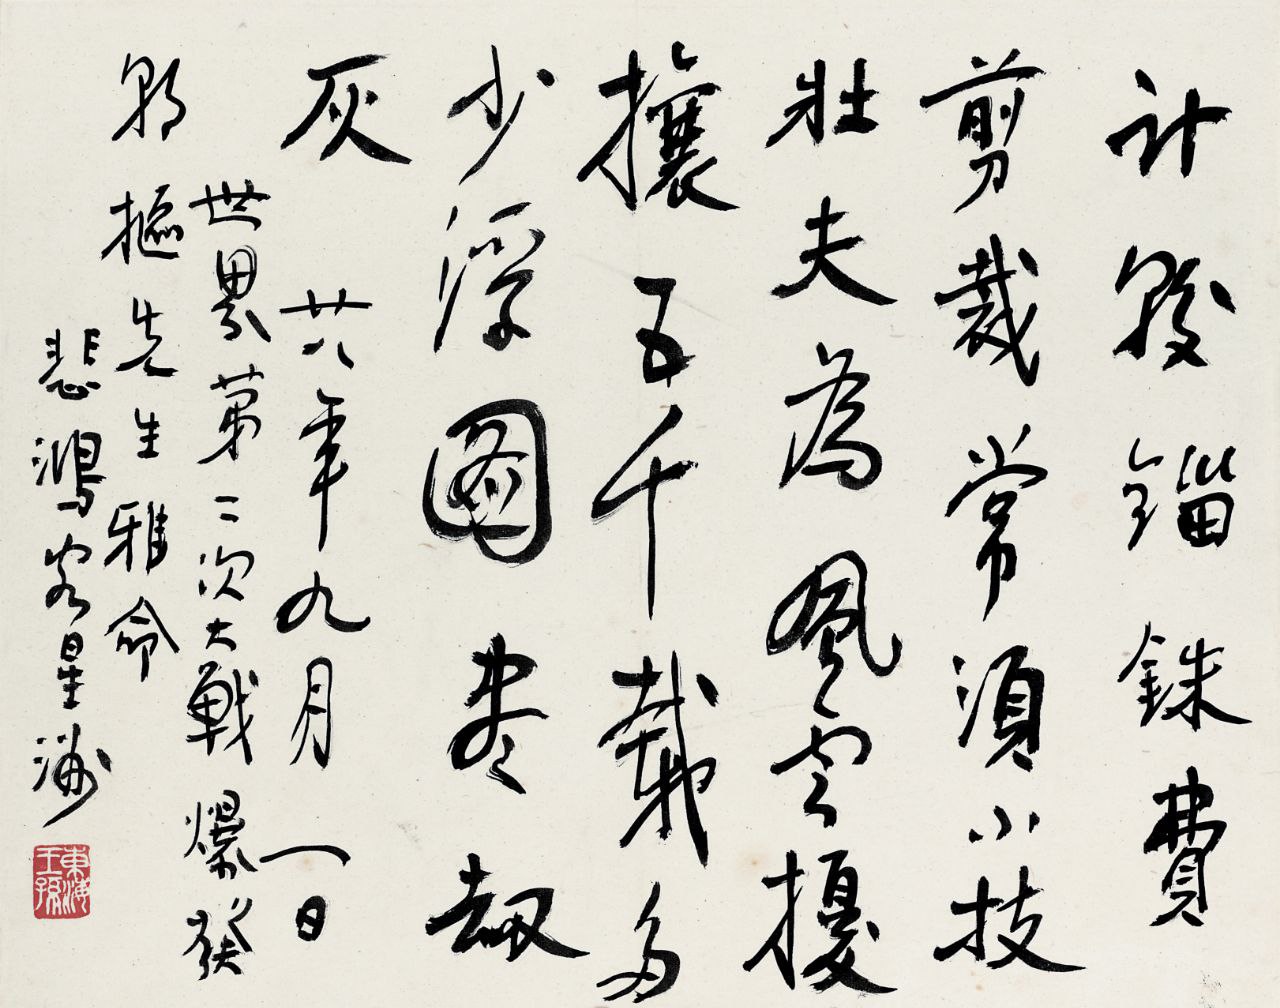 計較錙銖費
剪裁常湏小技
壯夫為風雲擾
攘五千載多
少浮圖盡劫
灰 廿八年九月一日
世界第二次大戰爆發
樞先生雅命
悲鴻客星洲
東海王孫